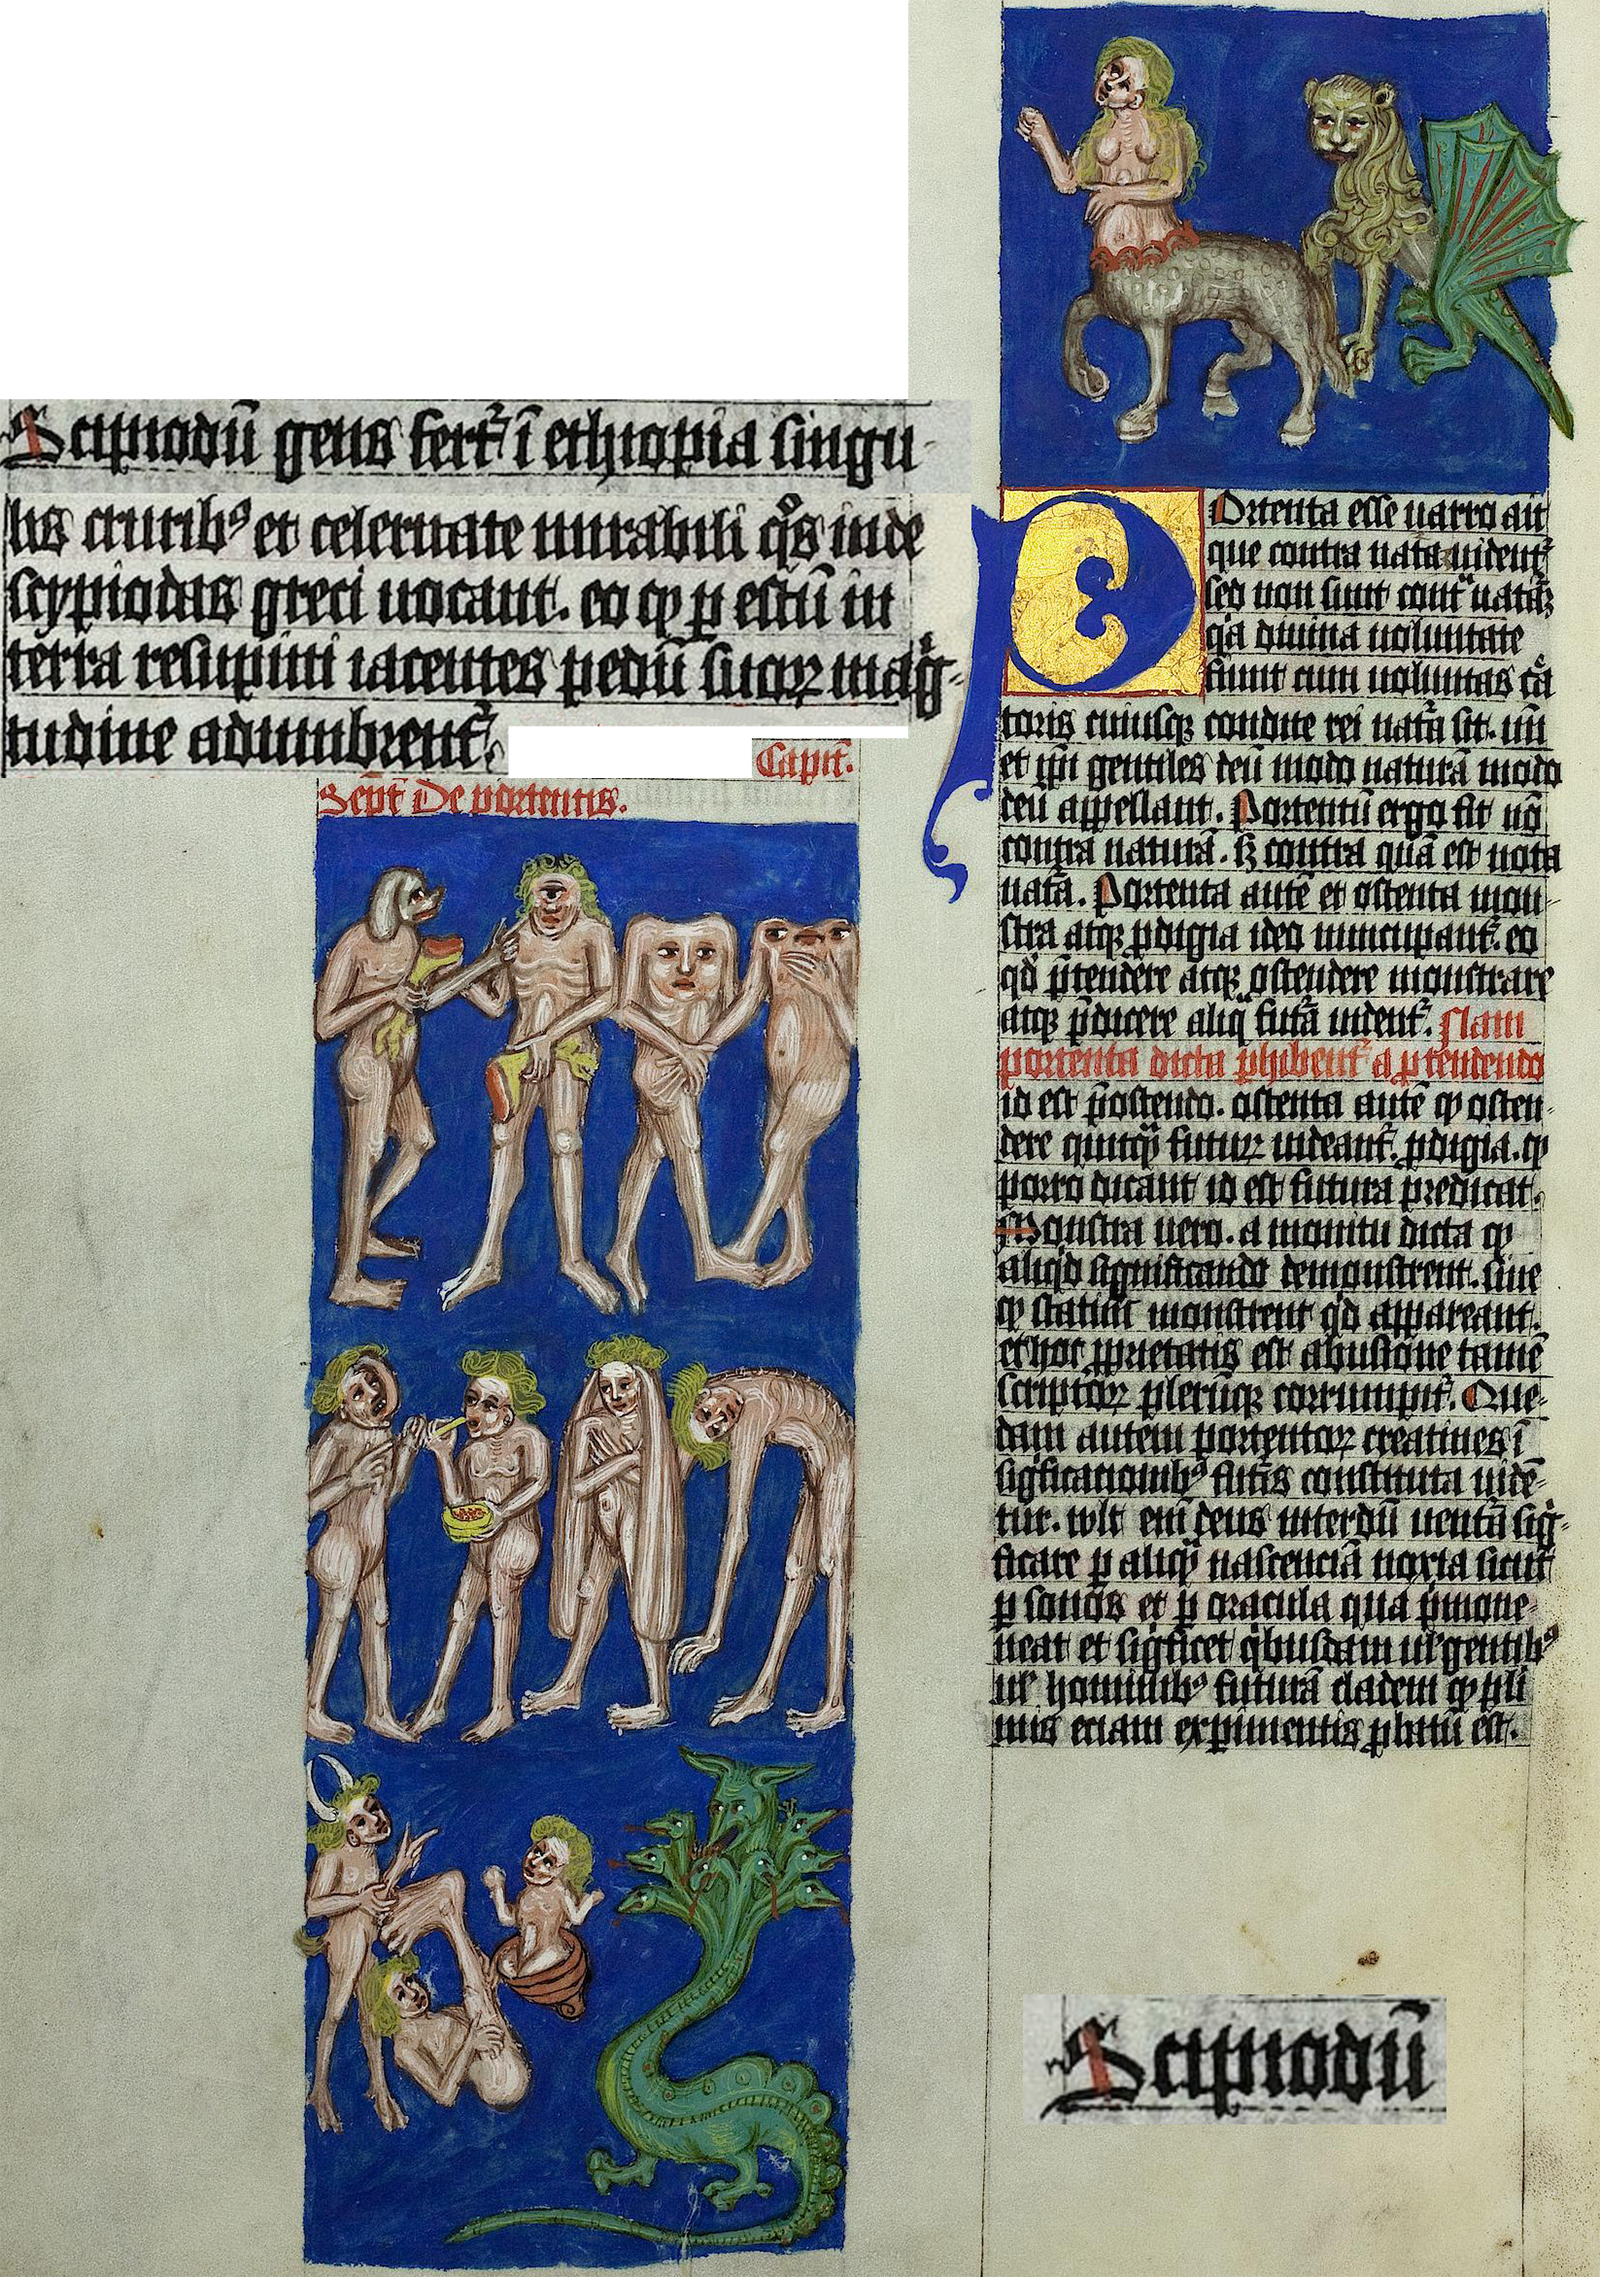 Scipiodū gens fert᷑ ī ethiopia singu
lis crurib⁹ et celeritate mirabili q̊s inde
scypiodas greci uocant. eo ꝙ ꝑ estū in
terra resupini iacentes pedū suoꝝ mag̊
tudine adumbrent᷑.
Capit᷑.
Sept᷑ De portentis.
Portenta esse uarro ait
que contra natā uident᷑
sed non sunt cont̄ natā
q̇a diuina uoluntate
fiunt cum uoluntas c̄a
toris cuiusqꝫ condite rei nat̄a sit. un̄
et ip̄i gentiles deū modo naturā modo
deū appellant. Portentū ergo fit nō
contra naturā. sꝫ contra quā est nota
nat̄a. Portenta autē et ostenta mon
stra atqꝫ ꝓdigia ideo nuncupant᷑. eo
qd̓ p̄tendere atqꝫ ostendere monstrare
atqꝫ p̄dicere aliq̄ fut̄a uident᷑. Nam
portenta dicta phibent᷑ a ꝑtendendo
id est p̄ostendo. ostenta autē ꝙ osten
dere quicq̄ futuꝝ uideant᷑. ꝓdigia. ꝙ
porro dicant id est futura predicāt.
Monstra uero. a monitu dicta ꝙ
aliqd̓ significando demonstrent. siue
ꝙ statim monstrent qd̓ appareant.
et hoc ꝓprietatis est abusione tamē
scriptoꝝ plerūqꝫ corrumpit᷑. Que
dam autem portentoꝝ creationes ī
sig̊ficationib⁹ fut̄is constituta uidē
tur. wlt em̄ deus interdū uentā sig̊
ficare ꝑ aliq̄ nascenciā noxia sicut
ꝑ sōnos et ꝑ oracula qua p̄mone
neat et sig̊ficet q̇busdam ul̓ gentib⁹
ul̓ hominib⁹ futurā cladem ꝙ pli
mis eciam exꝑimentis ꝓbatū est.
Scipiodū